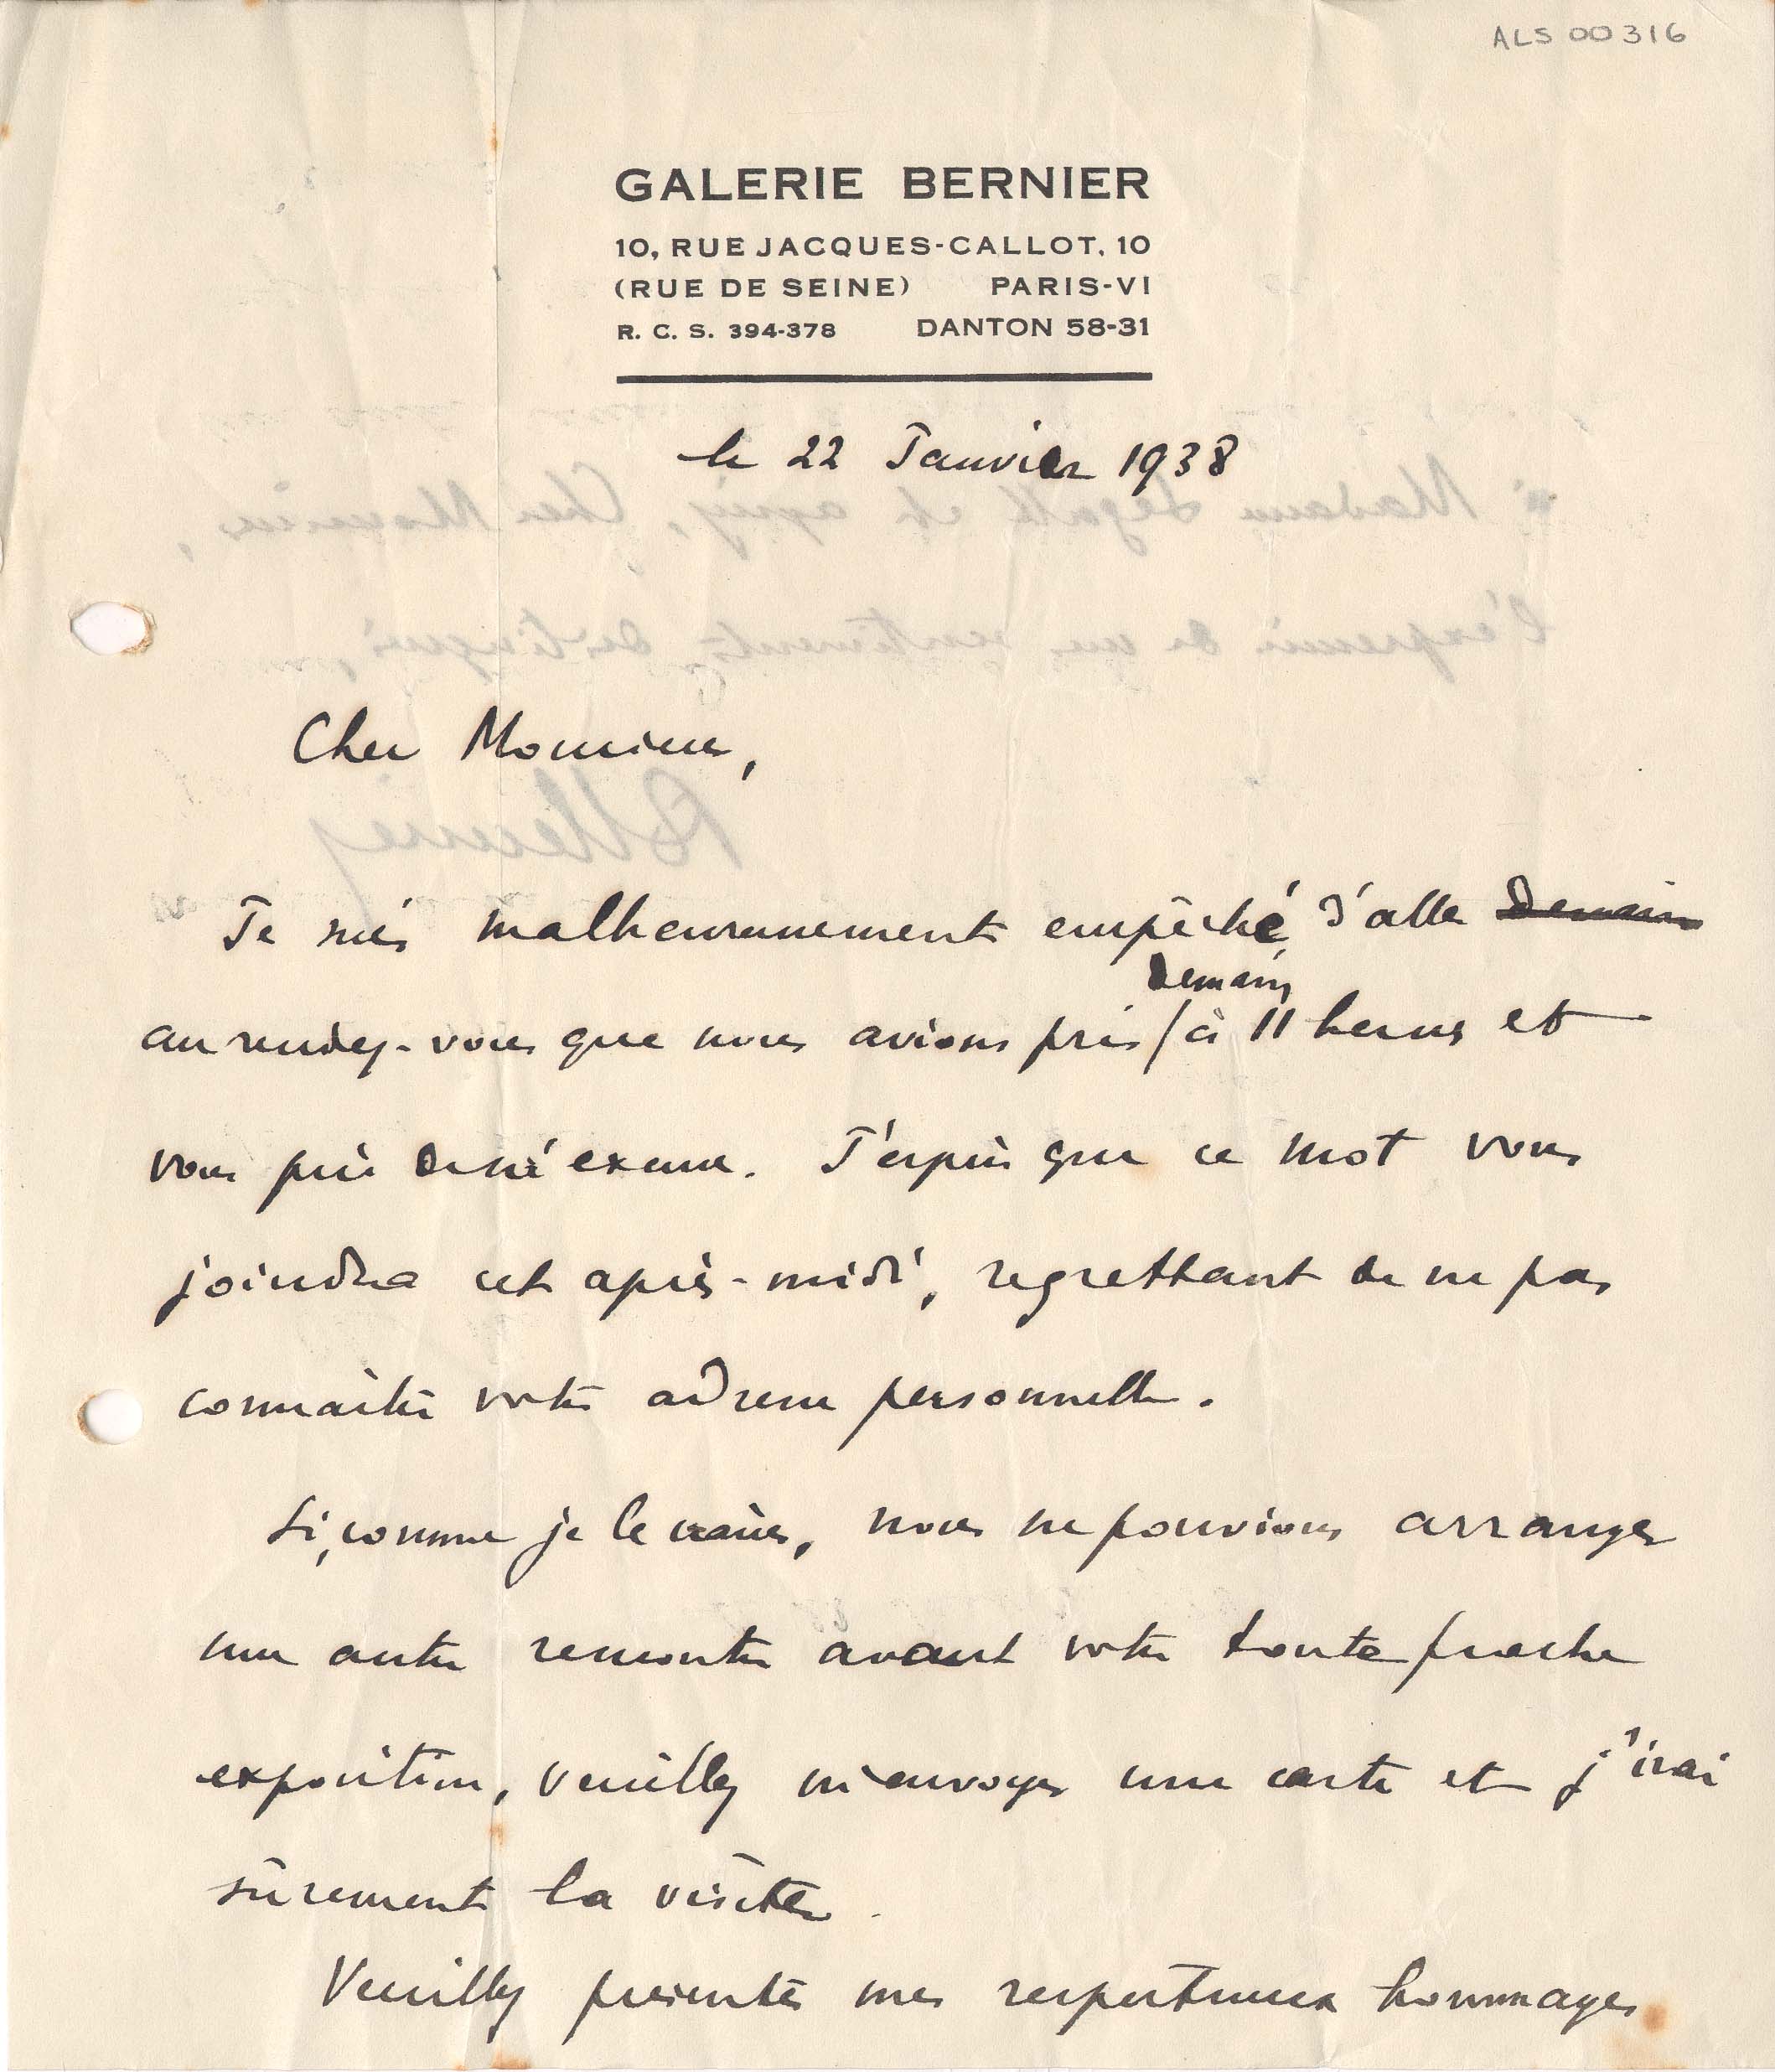 ALS 00316
GALERIE BERNIER
10, RUE JACQUES-CALLOT, 10
(RUE DE SEINE) PARIS-VI
R. C. S. 394-378 DANTON 58-31
le 22 Janvier 1938
Cher Monsieur,
Je suis malheureusement empêché d'aller Demain
demain
au rendez-vous que nous avions pris / à 11 heures et
vous prie de m'excuser. J'espère que ce mot vous
joindra cet après-midi, regrettant de ne pas
connaître votre adresse personnelle.
Si, comme je le crains, nous ne pouvions arranger
une autre rencontre avant votre toute proche
exposition, veuillez m'envoyer une carte et j'irai
sûrement la visiter.
Veuillez présenter mes respectueux hommages